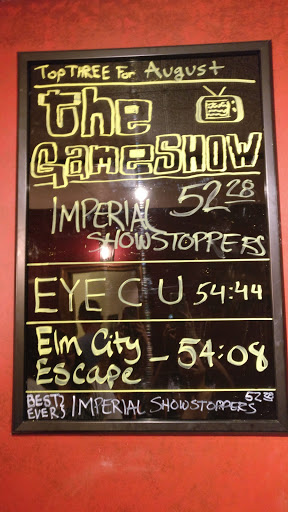 Top THREE For August
the
GameSHOW
IMPERIAL 52 28
SHOWSTOPPERS
EYE C U 54:44
Elm City
Escape – 54:08
BEST EVER! IMPERIAL SHOWSTOPPERS 52 28